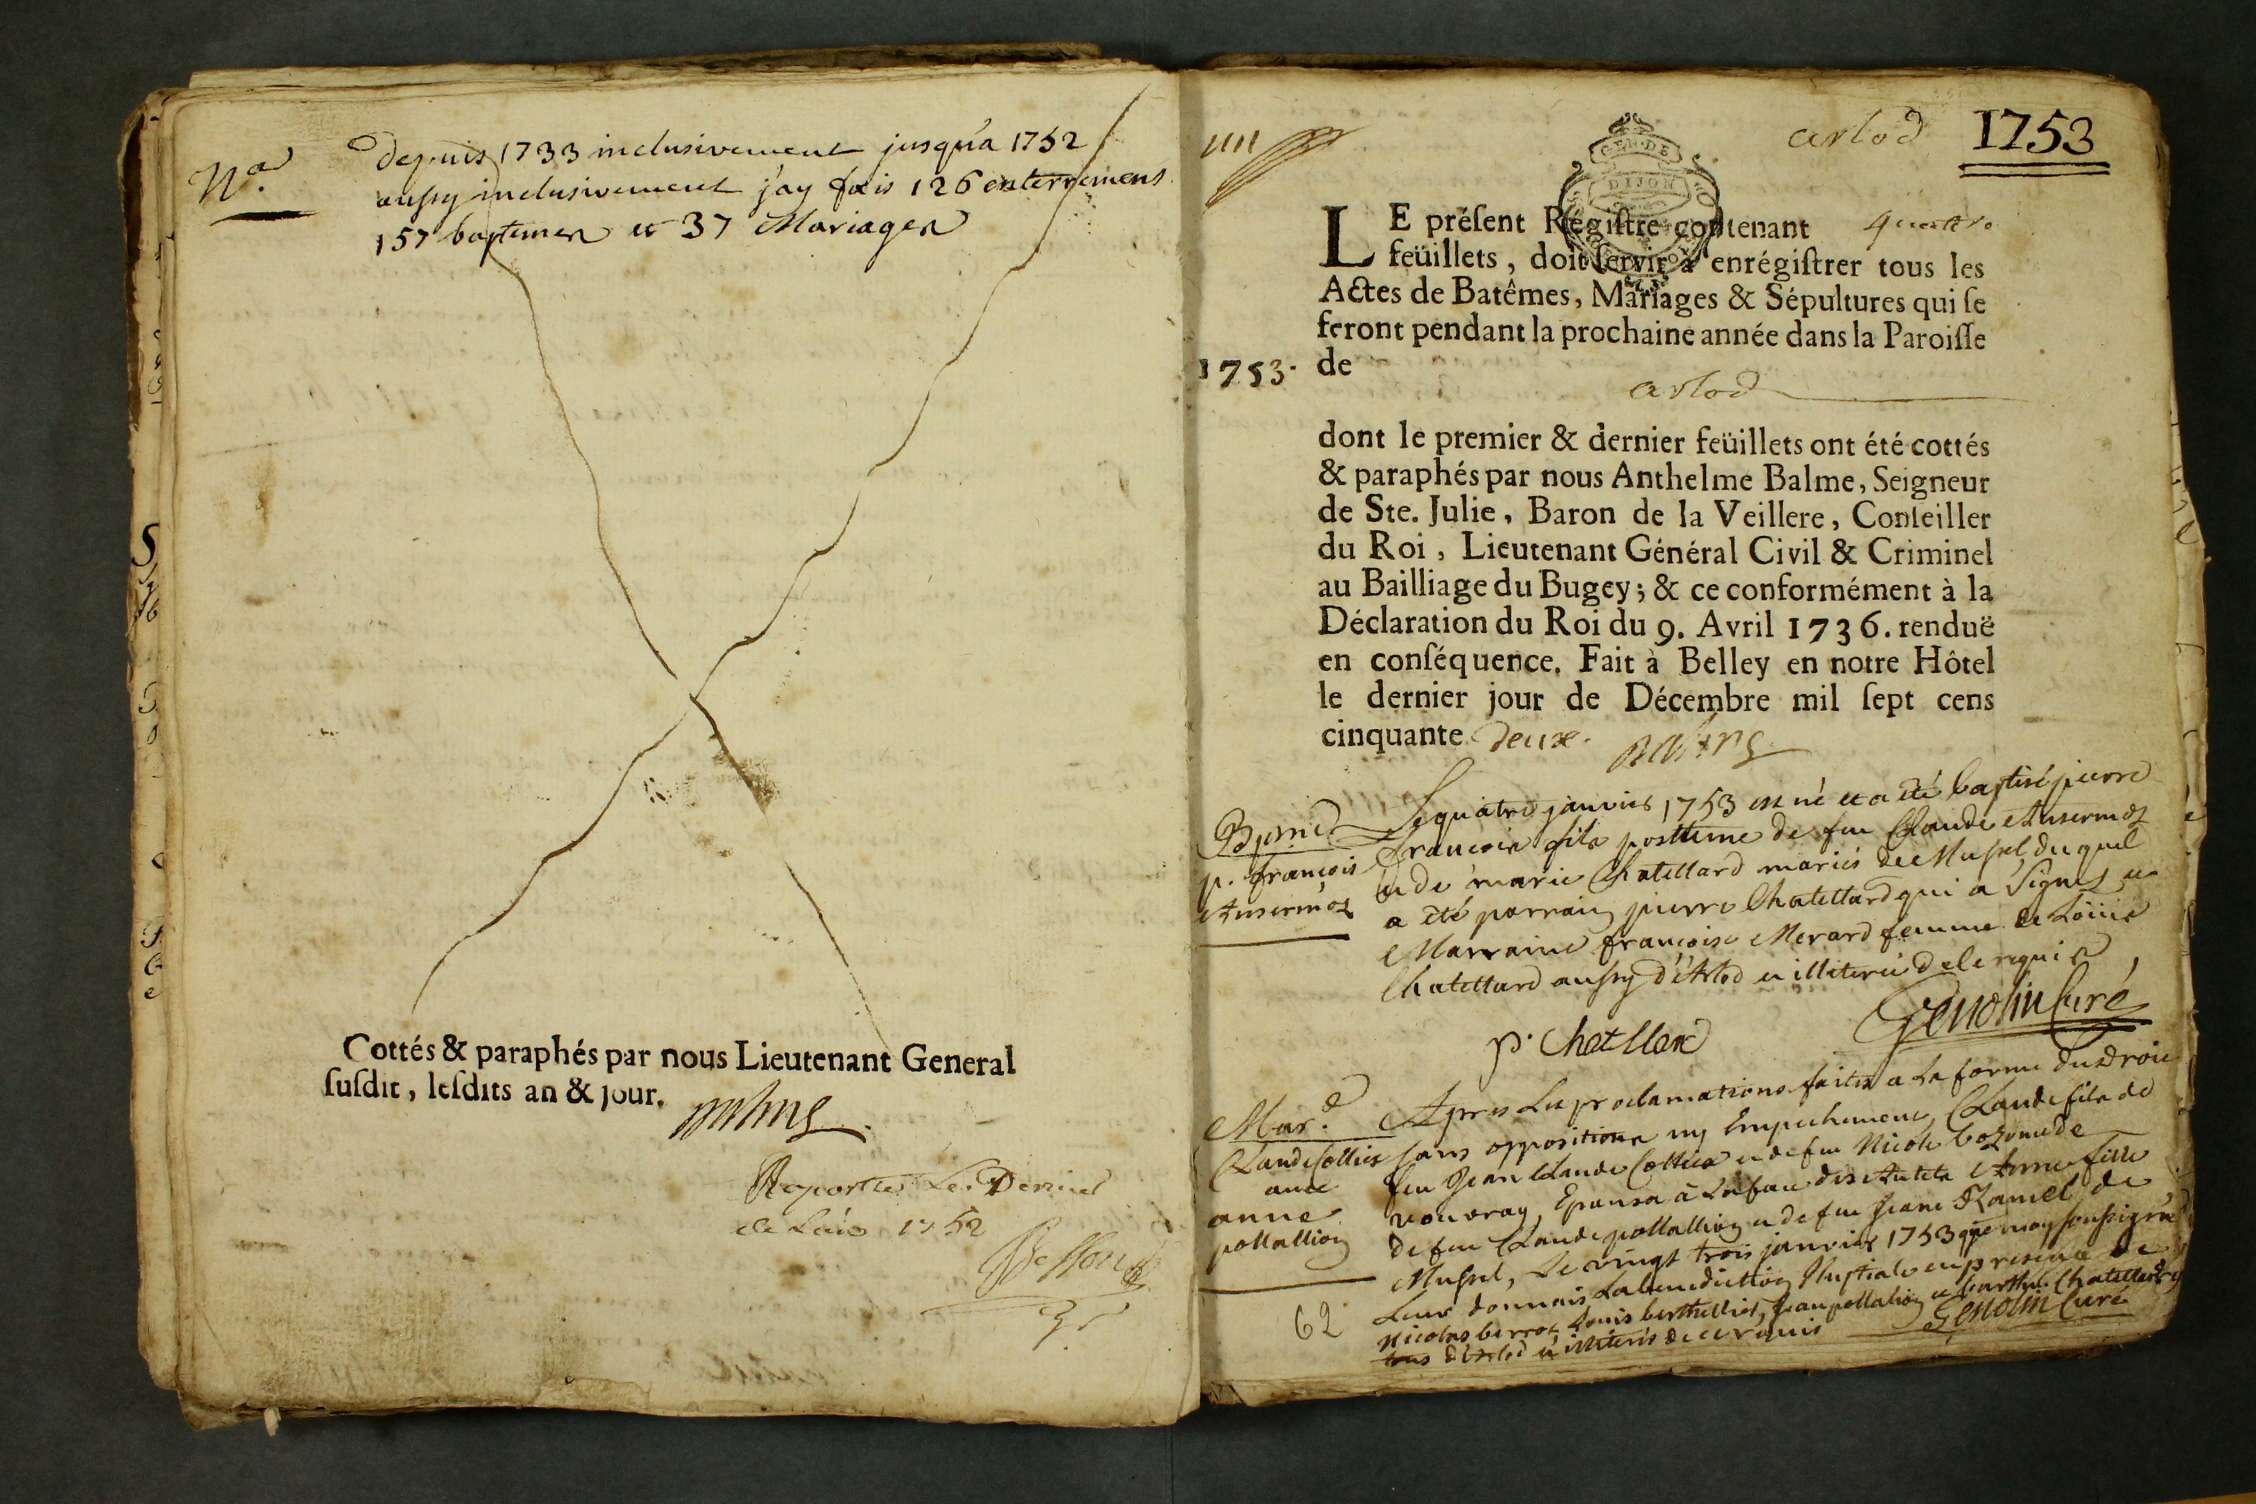 Na.
depuis 1733 inclusivement jusqu'a 1752
aussy inclusivement j'ay fais 126 enterremens
157 baptemes et 37 Mariages
Cottés & paraphés par nous Lieutenant General
susdit, lesdits an & jour.
1752
arlod 1753
GEN. DE
DIJON
LE présent Régistre contenant quattre
feüillets, doit servir à enrégistrer tous les
Actes de Batêmes, Mariages & Sépultures qui se
feront pendant la prochaine année dans la Paroisse
1753. de
arlod
dont le premier & dernier feüillets ont été cottés
& paraphés par nous Anthelme Balme, Seigneur
de Ste. Julie, Baron de la Veillere, Conseiller
du Roi, Lieutenant Général Civil & Criminel
au Bailliage du Bugey; & ce conformément à la
Déclaration du Roi du 9. Avril 1736. renduë
en conséquence. Fait à Belley en notre Hôtel
le dernier jour de Décembre mil sept cens
cinquante deux.
Bpme
p. françois
Ansermoz
Le quatre janvier 1753 est né et a été baptisé pierre
francois fils posttume de feu Claude Ansermoz
et de marie Chatellard mariés de Mussel, du quel
a été parrain pierre Chatellard qui a signé et
Marraine françoise Merard femme de Loüis
Chatellard aussy d'Arlod et illiterée de ce requis
Genolin Curé
p. Chatllard
Mar.e
Claude Collier
avec
anne
pollallion
Apres les proclamations faites a la forme du Droit
sans oppositions ny Empechement, Claude fils de
feu Jean Claude Collier et de feu Nicole de
vouvray, Epousa à la face des Autels Anne fille
de feu Claude pollallion et de feu Jeane Ramel de
Mussel, Le vingt trois janvier 1753 que moy soussigné
Leur donnais La benediction Nuptiale en presence de
Nicolas berrod, Louis berthellier, Jean pollalion et barthel. Chatellard
tous d'Arlod et illiterés de ce requis
Genolin Curé
62